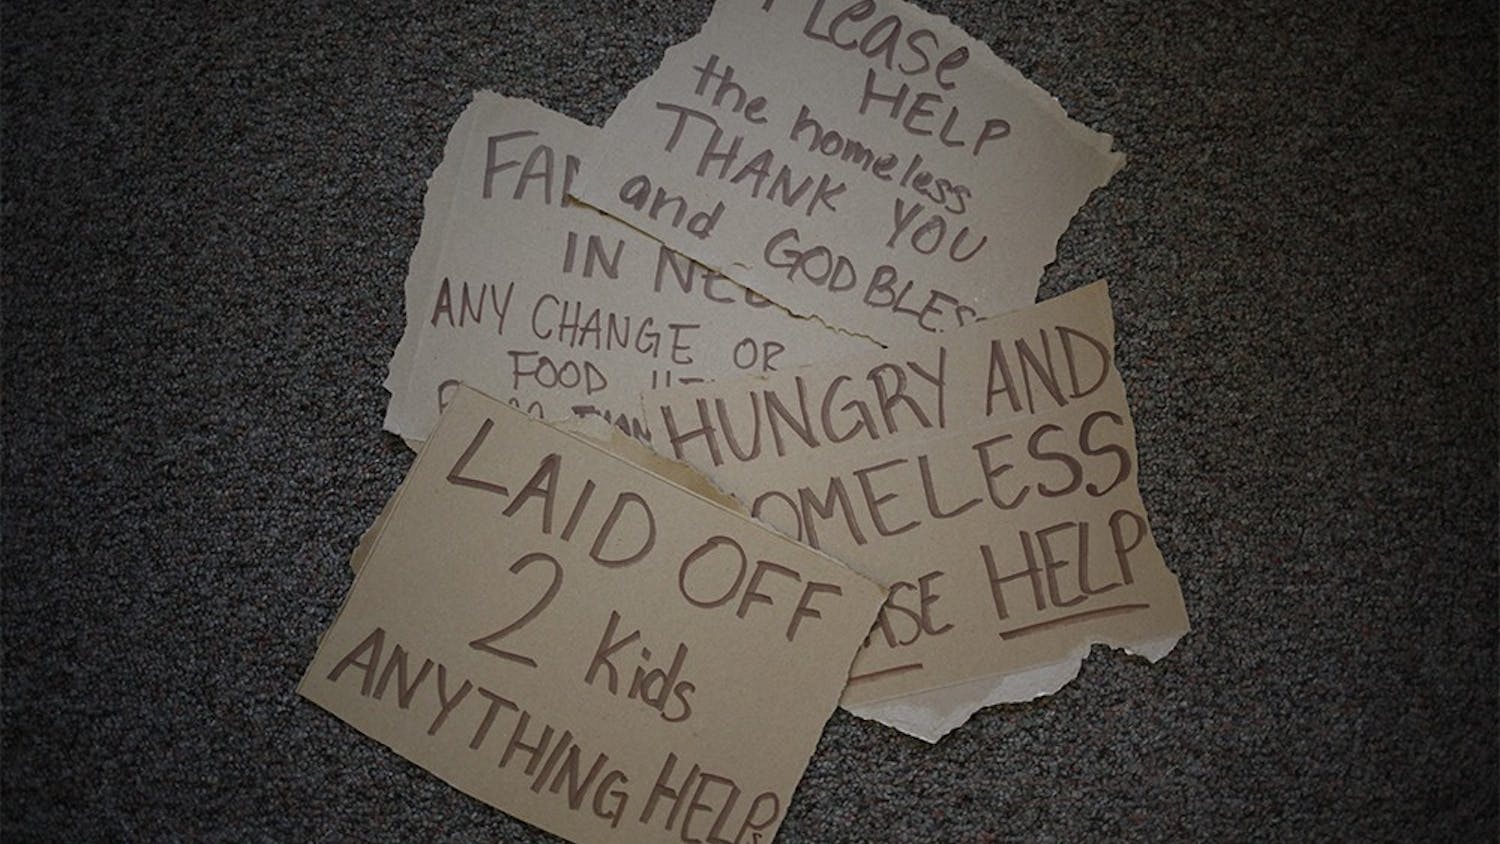 Please
HELP
the homeless
THANK YOU
and GOD BLESS
IN
ANY CHANGE OR
FOOD
HUNGRY AND
HELP
LAID OFF
2 Kids
ANYTHING HELPS